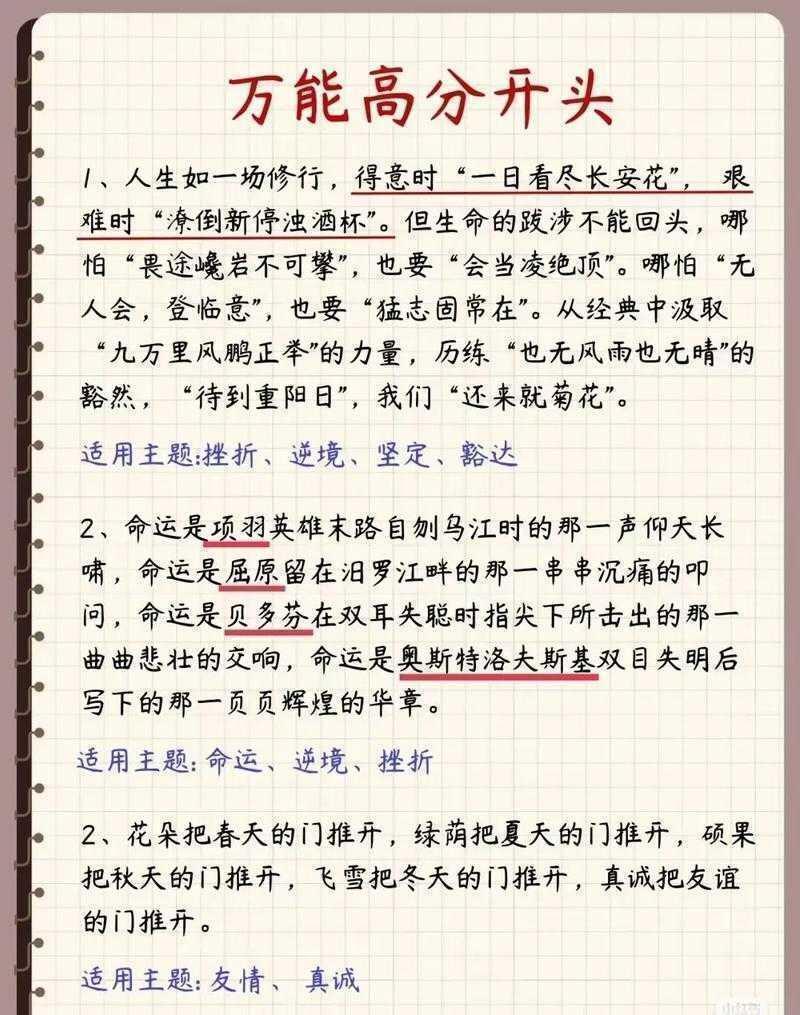 万能高分开头
1、人生如一场修行，得意时“一日看尽长安花”，艰
难时“潦倒新停浊酒杯”。但生命的跋涉不能回头，哪
怕“畏途巉岩不可攀”，也要“会当凌绝顶”。哪怕“无
人会，登临意”，也要“猛志固常在”。从经典中汲取
“九万里风鹏正举”的力量，历练“也无风雨也无晴”的
豁然，“待到重阳日”，我们“还来就菊花”。
适用主题:挫折、逆境、坚定、豁达
2、命运是项羽英雄末路自刎乌江时的那一声仰天长
啸，命运是屈原留在汨罗江畔的那一串串沉痛的叩
问，命运是贝多芬在双耳失聪时指尖下所击出的那一
曲曲悲壮的交响，命运是奥斯特洛夫斯基双目失明后
写下的那一页页辉煌的华章。
适用主题:命运、逆境、挫折
2、花朵把春天的门推开，绿荫把夏天的门推开，硕果
把秋天的门推开，飞雪把冬天的门推开，真诚把友谊
的门推开。
适用主题:友情、真诚
小红书